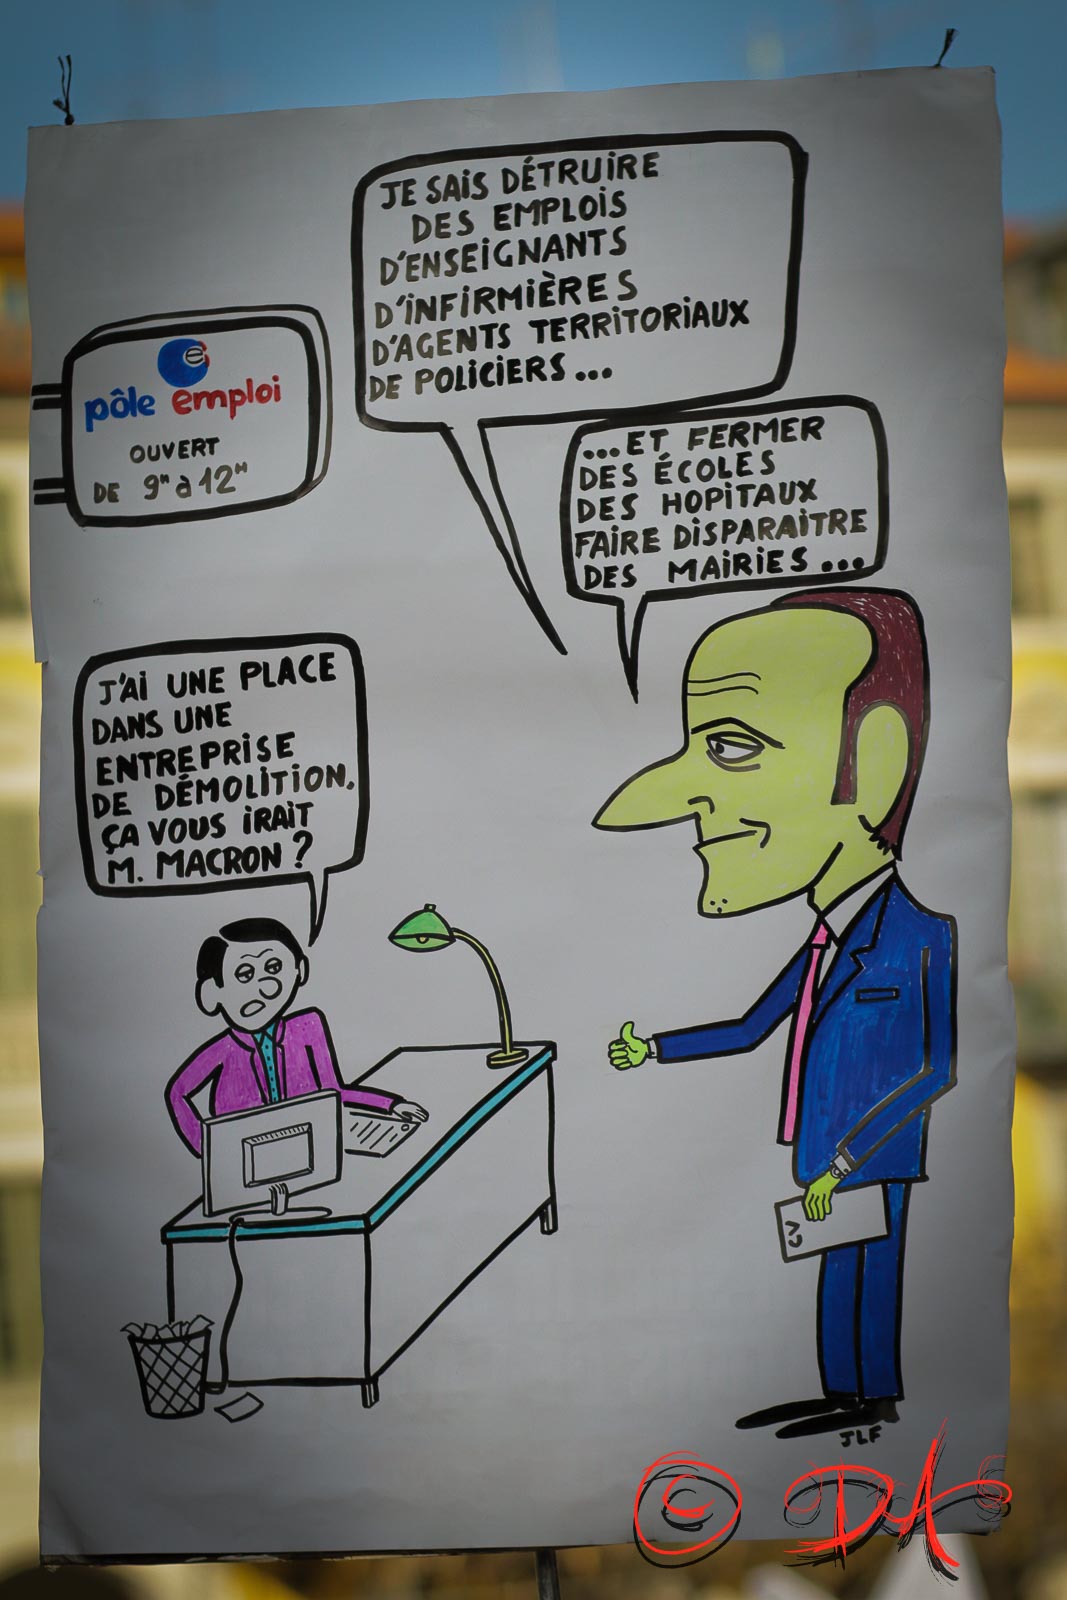 JE SAIS DÉTRUIRE
DES EMPLOIS
D'ENSEIGNANTS
D'INFIRMIÈRES
D'AGENTS TERRITORIAUX
DE POLICIERS...
...ET FERMER
DES ÉCOLES
DES HOPITAUX
FAIRE DISPARAITRE
DES MAIRIES...
e
pôle emploi
OUVERT
DE 9H à 12H
J'AI UNE PLACE
DANS UNE
ENTREPRISE
DE DÉMOLITION.
ÇA VOUS IRAIT
M. MACRON ?
CV
JLF
© DA